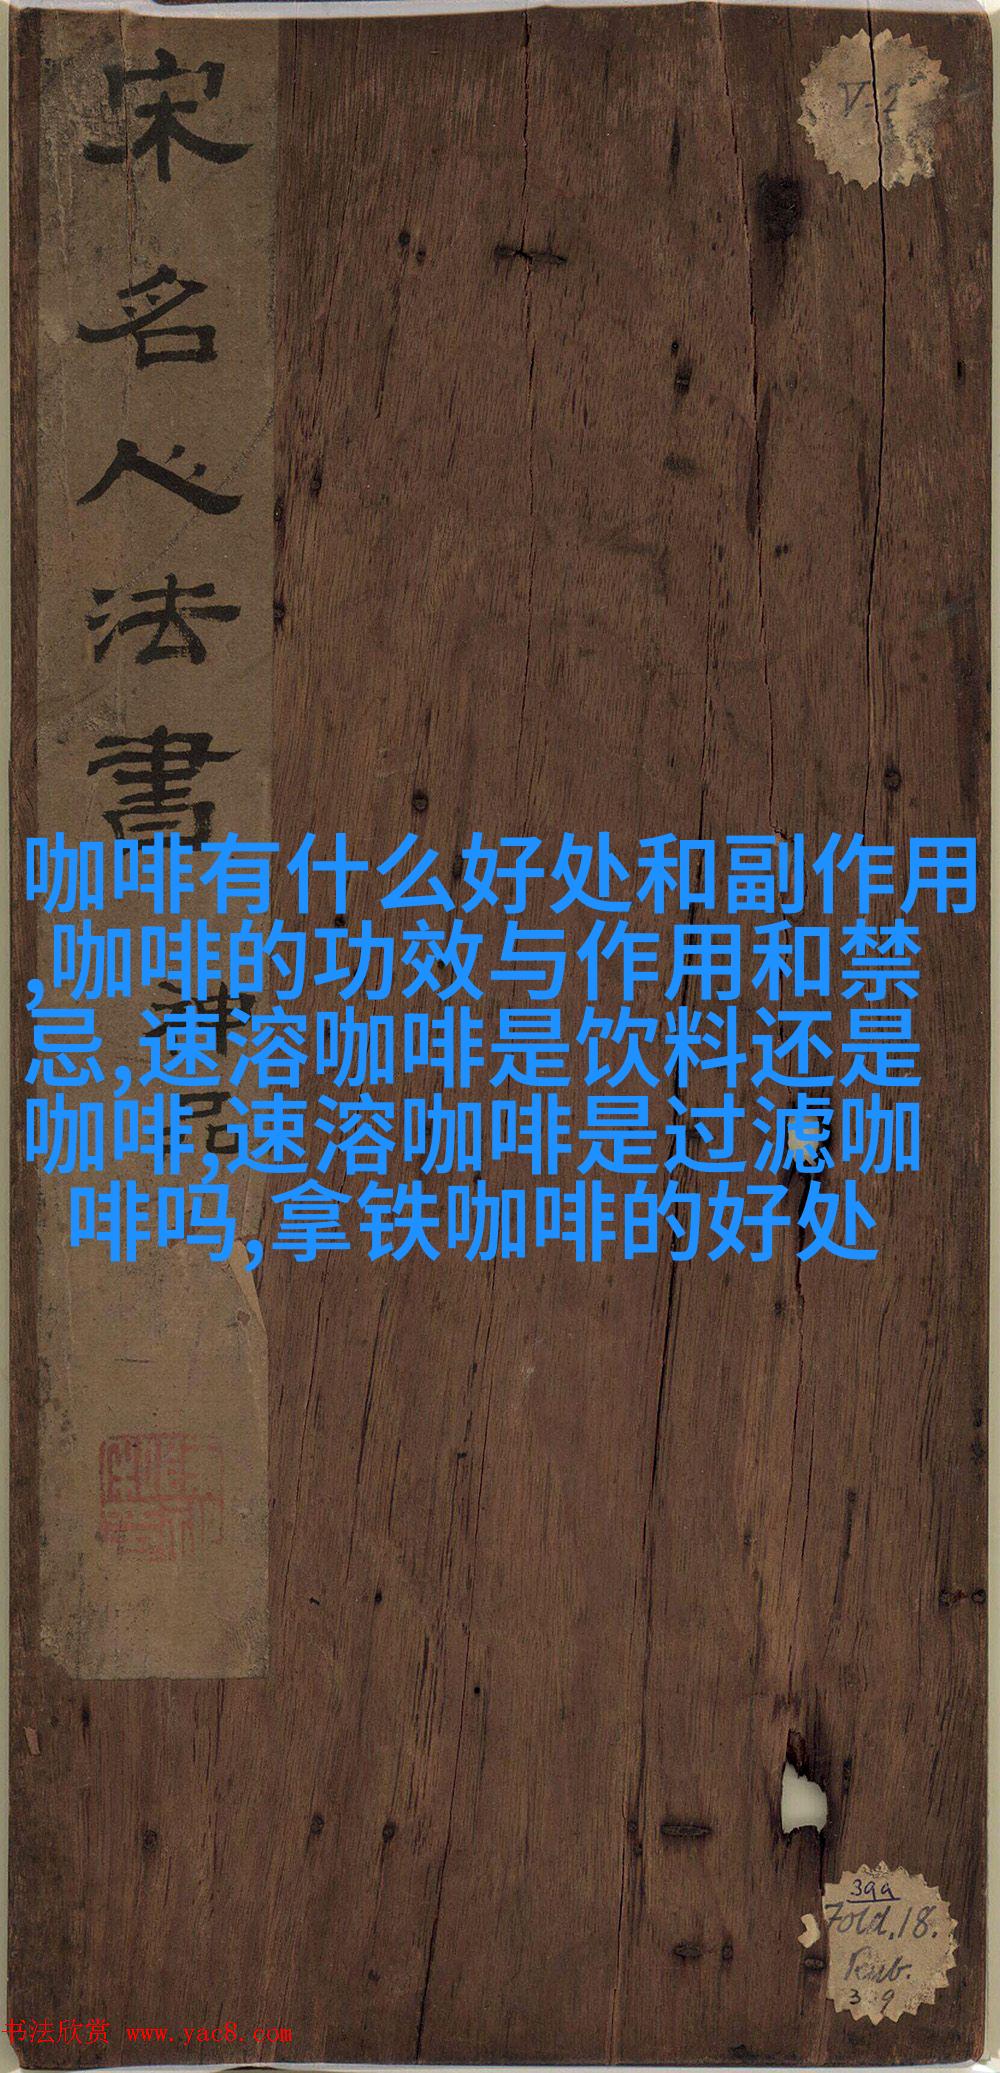 宋名人法書
神品
V-2
咖啡有什么好处和副作用
,咖啡的功效与作用和禁
忌,速溶咖啡是饮料还是
咖啡,速溶咖啡是过滤咖
啡吗,拿铁咖啡的好处
399
Fold.18.
Rub.
书法欣赏 www.yac8.com